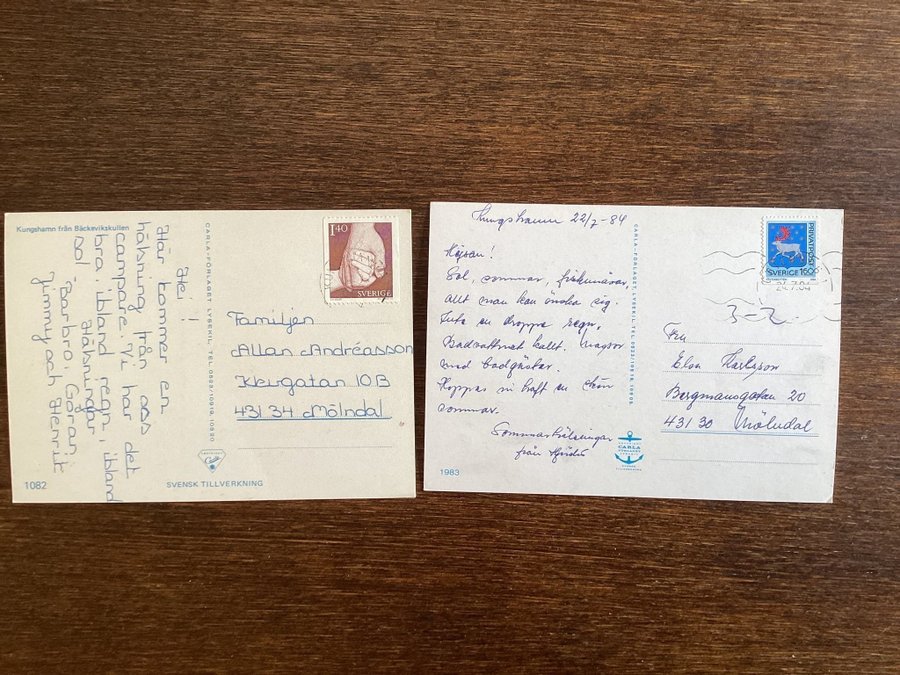 Kungshamn från Bäckevikskullen
Hej!
Här kommer en
hälsning från oss
campare. Vi har det
bra ibland regn, ibland
sol. Hälsningar
Barbro, Göran,
Jimmy och Henrik
1082
SVENSK TILLVERKNING
CARLA-FÖRLAGET LYSEKIL, TEL. 0523/10919, 10520
140
SVERIGE
Familjen
Allan Andréasson
Kleugatan 10B
431 34 Mölndal
Kungshamn 22/7-84
Höjsan!
Sol, sommar, friluftsvärar,
Allt man kan önska sig.
Inte en droppe regn,
Badvattnet kallt. Massor
med badgäster.
Hoppas ni haft en skön
sommar.
Sommarhälsningar
från
1983
CARLA-FÖRLAGET LYSEKIL, TEL.
CARLA
PRIVATPOST
SVERIGE 160
24.7.84
3-2.
Elsa Karlsson
Bergmansgatan 20
431 30 Mölndal